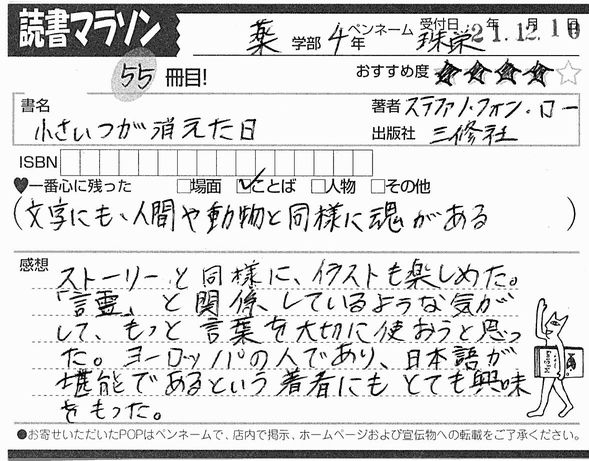 読書マラソン
薬 学部 4年 ペンネーム 珠栄 受付日 21.12.10
55 冊目!
おすすめ度 ★★★★☆
書名 小さいつが消えた日
著者 ステファノ・フォン・ロー
出版社 三修社
ISBN
♥一番心に残った □場面 ☑ことば □人物 □その他
(文字にも、人間や動物と同様に魂がある)
感想 ストーリーと同様に、イラストも楽しめた。
「言霊」と関係しているような気が
して、もっと言葉を大切に使おうと思っ
た。ヨーロッパの人であり、日本語が
堪能であるという著者にもとても興味
をもった。
●お寄せいただいたPOPはペンネームで、店内で掲示、ホームページおよび宣伝物への転載をご了承ください。